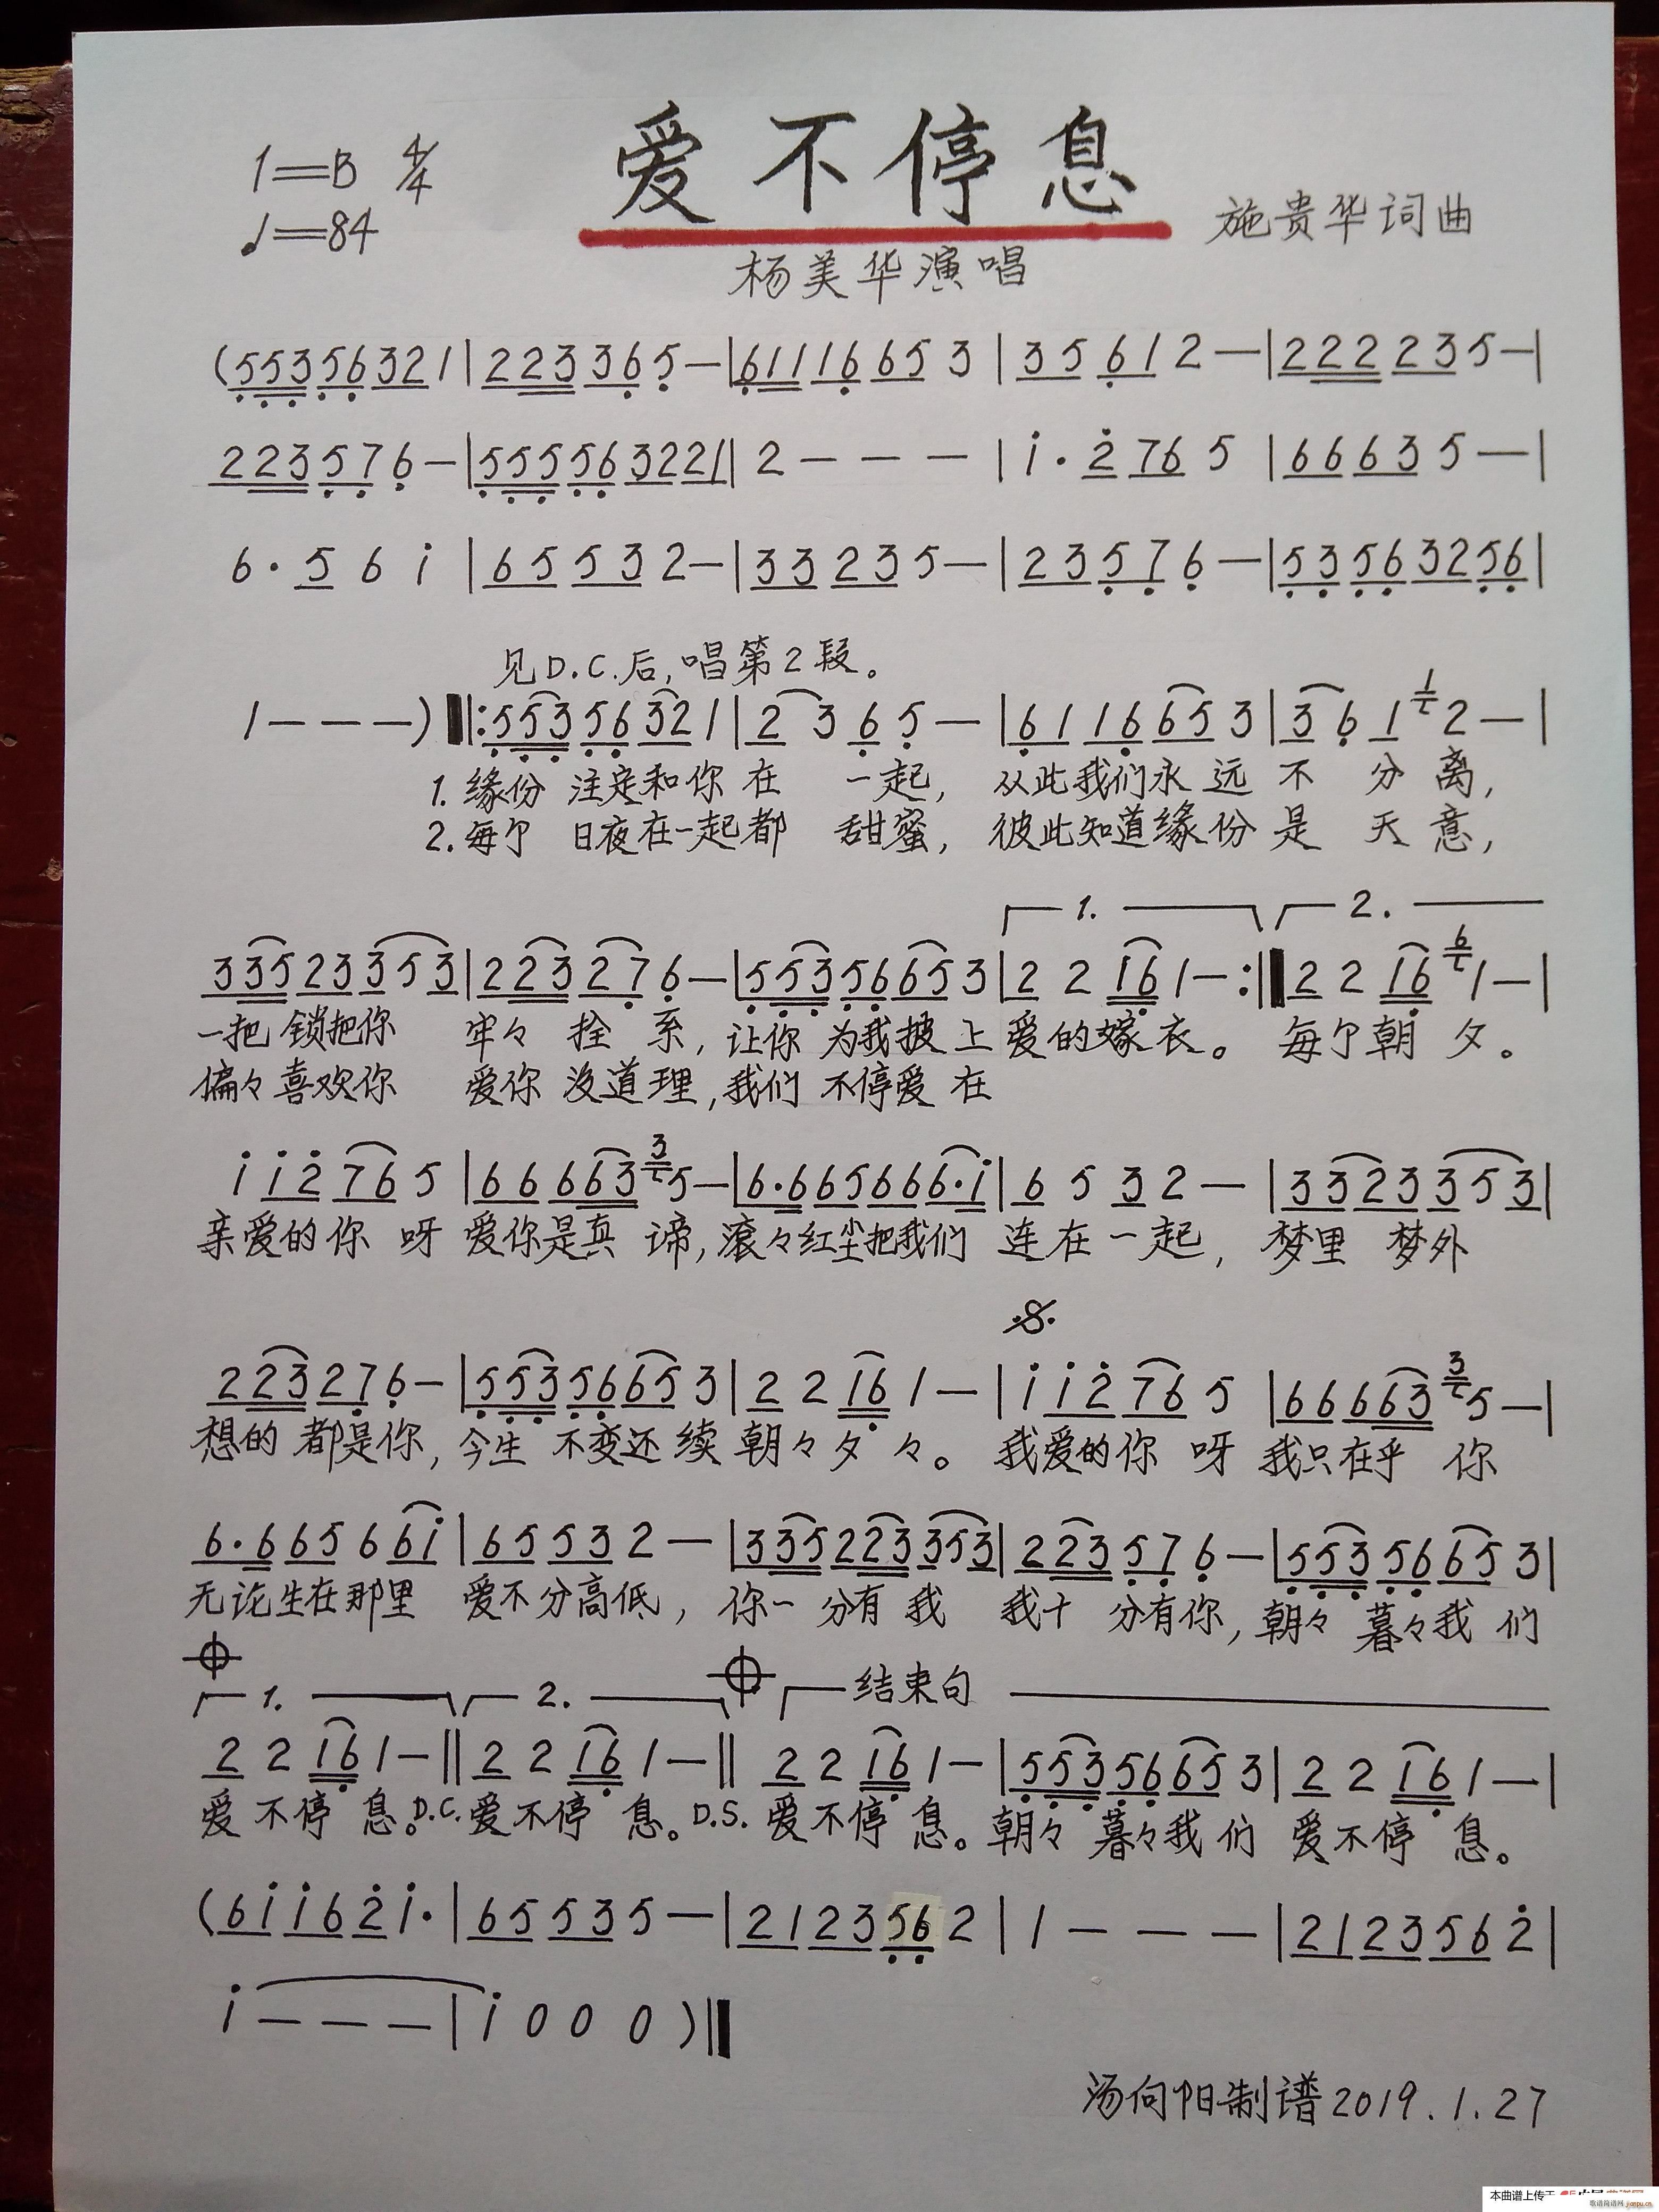 爱不停息
1=B 4/4
♩=84
施贵华词曲
杨美华演唱
(5 5 3 5 6 3 2 1 | 2 2 3 3 6 5 — | 6 1 1 1 6 6 5 3 | 3 5 6 1 2 — | 2 2 2 2 3 5 — |
2 2 3 5 7 6 — | 5 5 5 5 6 3 2 2 1 | 2 — — — | i · 2 7 6 5 | 6 6 6 3 5 — |
6 · 5 6 i | 6 5 5 3 2 — | 3 3 2 3 5 — | 2 3 5 7 6 — | 5 3 5 6 3 2 5 6 |
见D.C.后,唱第2段。
1 — — — ) ‖: 5 5 3 5 6 3 2 1 | 2 3 6 5 — | 6 1 1 6 6 5 3 | 3 6 1 1 2 — |
1. 缘份 注定和你 在 一起, 从此我们永 远 不 分 离,
2. 每个 日夜在一起都 甜蜜, 彼此知道缘 份 是 天 意,
1. 2.
3 3 5 2 3 3 5 3 | 2 2 3 2 7 6 — | 5 5 3 5 6 6 5 3 | 2 2 1 6 1 — :‖ 2 2 1 6 6 1 — |
一把 锁把你 牢々 拴 系, 让你 为我披 上 爱的嫁 衣。 每个朝 夕。
偏々喜欢你 爱你 没道理, 我们 不停爱 在
i i 2 7 6 5 | 6 6 6 6 3 3 5 — | 6 · 6 6 5 6 6 6 · i | 6 5 3 2 — | 3 3 2 3 3 5 3 |
亲爱的你 呀 爱你是真 谛, 滚々红尘把我们 连在一起, 梦里 梦外
𝄋
2 2 3 2 7 6 — | 5 5 3 5 6 6 5 3 | 2 2 1 6 1 — | i i 2 7 6 5 | 6 6 6 6 3 3 5 — |
想的 都是你, 今生 不变还 续 朝々夕 々。 我爱的你 呀 我只在乎 你
6 · 6 6 5 6 6 i | 6 5 5 3 2 — | 3 3 5 2 2 3 3 5 3 | 2 2 3 5 7 6 — | 5 5 3 5 6 6 5 3 |
无论生在那里 爱不分高低, 你一 分有 我 我十 分有你, 朝々 暮々我 们
1. 2. 结束句
2 2 1 6 1 — ‖ 2 2 1 6 1 — ‖ 2 2 1 6 1 — | 5 5 3 5 6 6 5 3 | 2 2 1 6 1 — |
爱不停 息。D.C. 爱不停 息。D.S. 爱不停 息。朝々 暮々我 们 爱不停 息。
(6 i i 6 2 i · | 6 5 5 3 5 — | 2 1 2 3 5 6 2 | 1 — — — | 2 1 2 3 5 6 2 |
i — — — | i 0 0 0 ) ‖
汤向阳制谱2019.1.27
本曲谱上传于